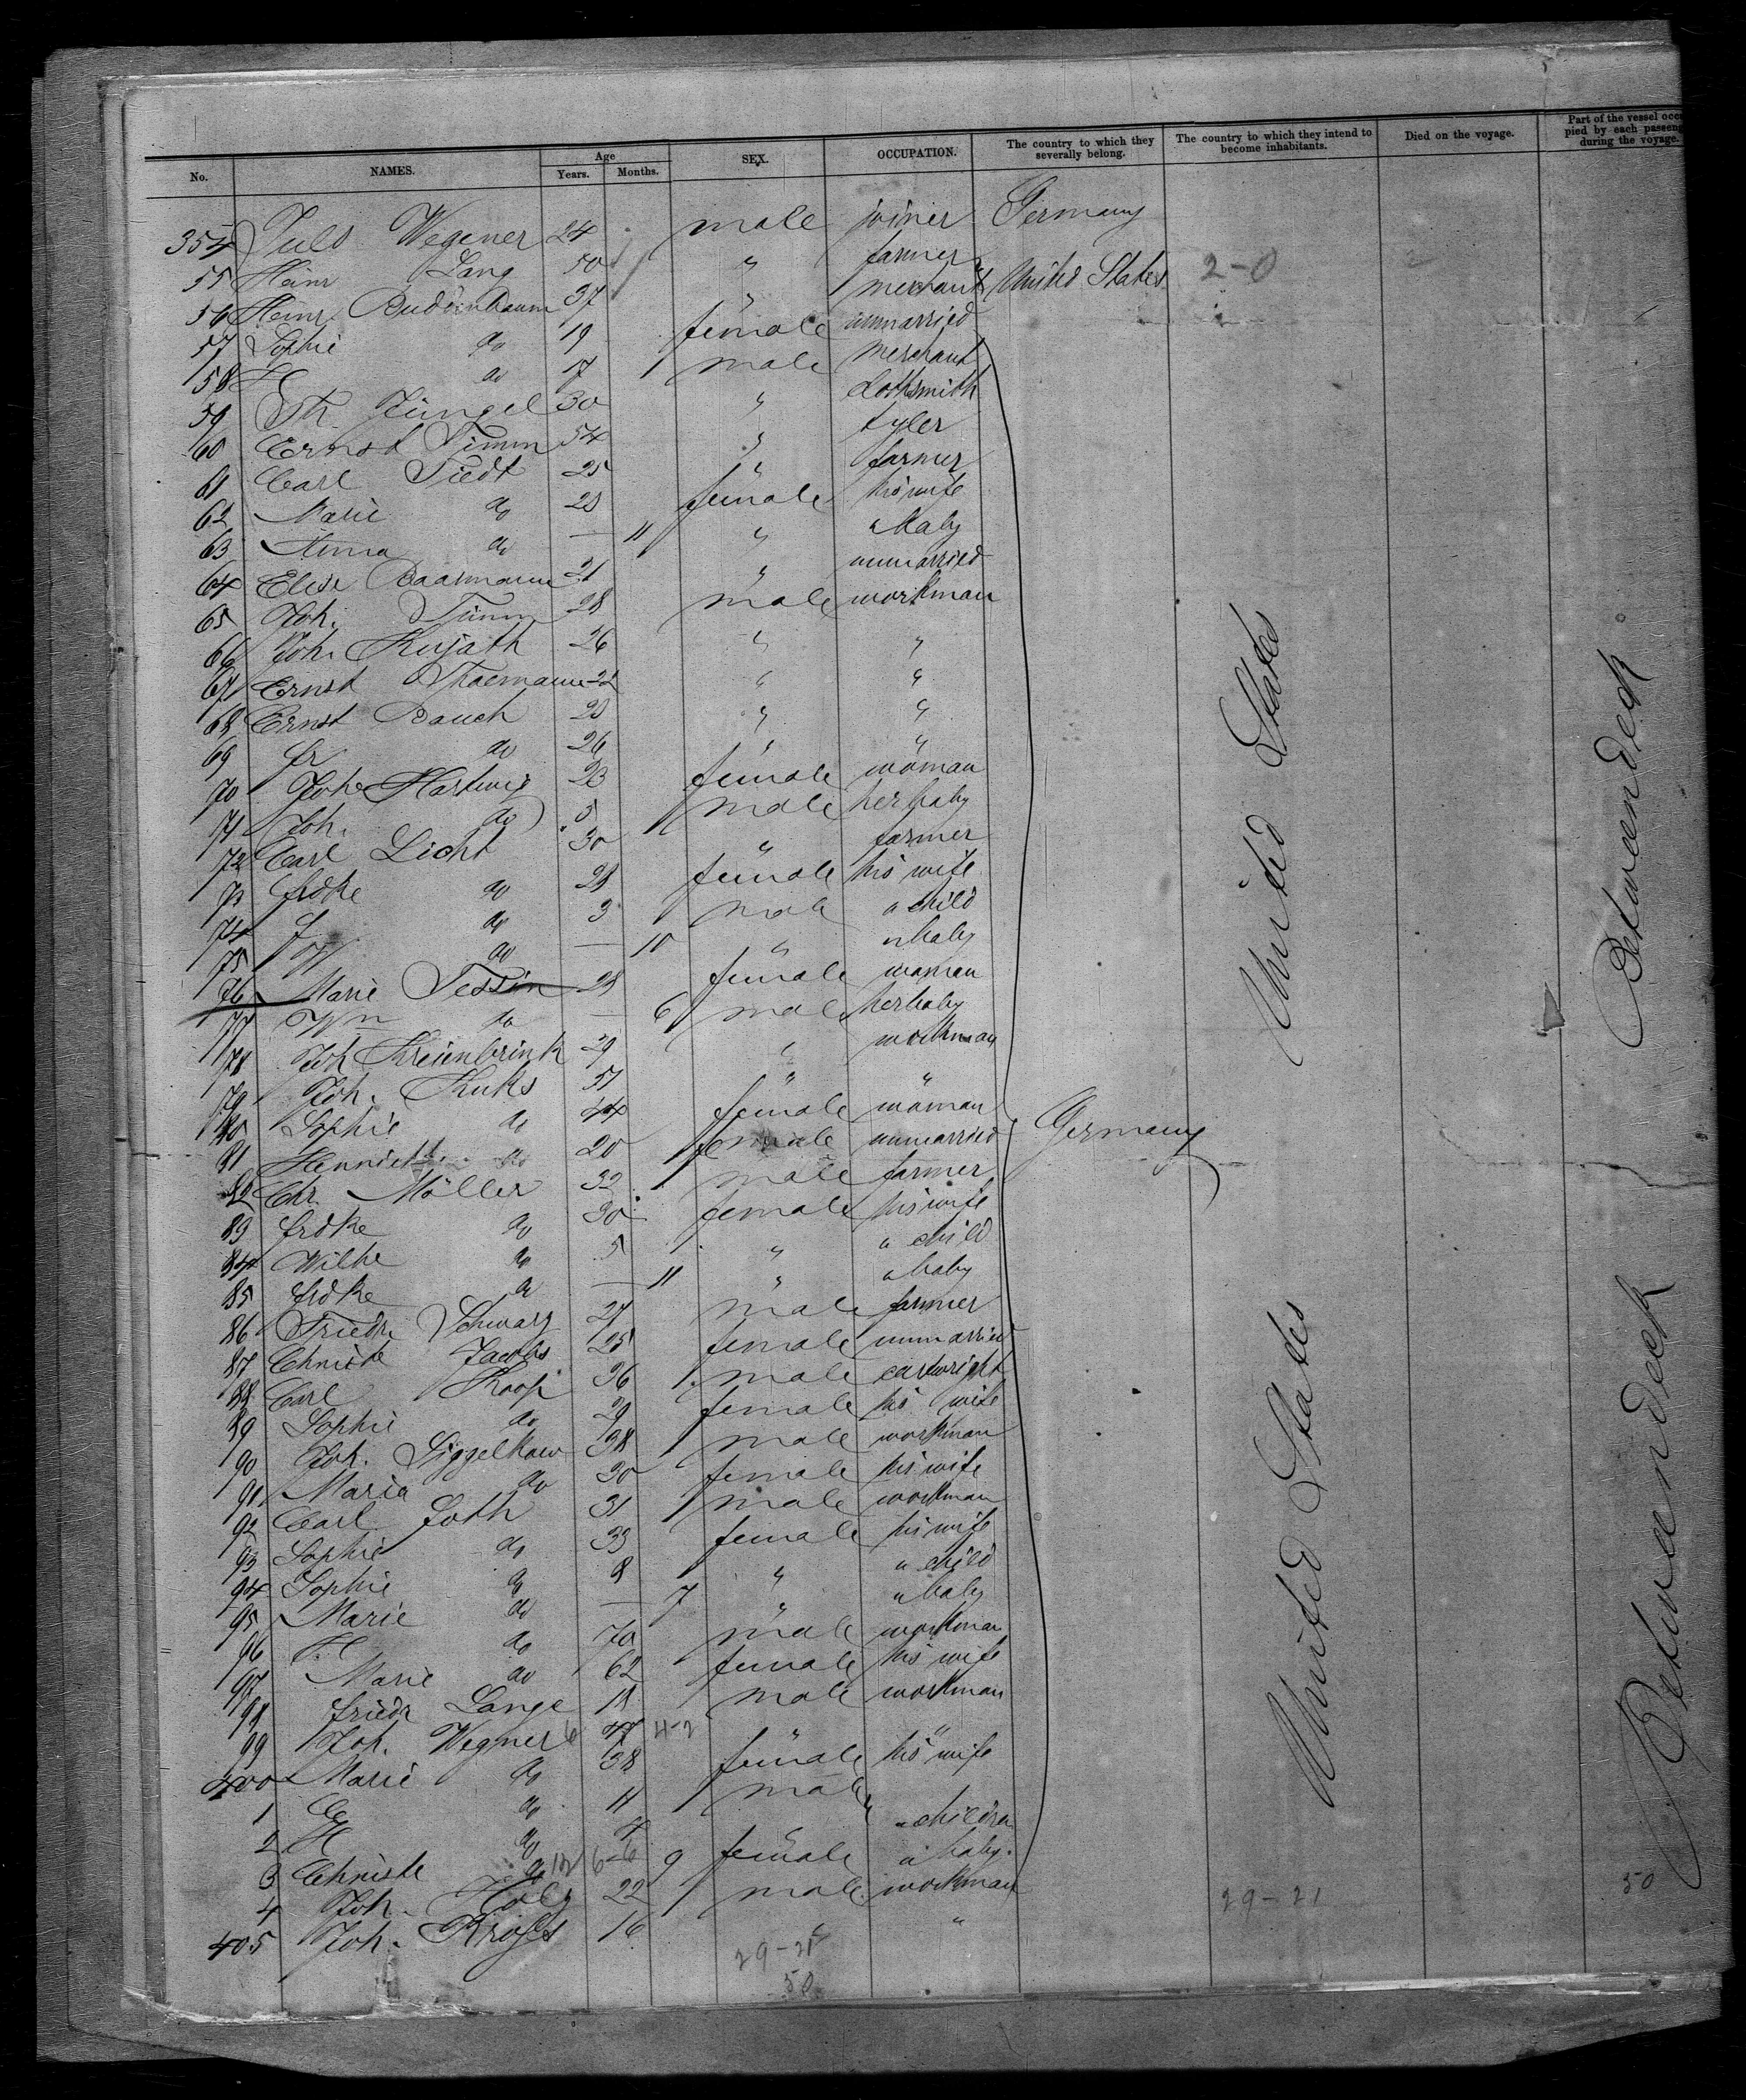 No. NAMES. Age Years. Months. SEX. OCCUPATION. The country to which they severally belong. The country to which they intend to become inhabitants. Died on the voyage. Part of the vessel occu pied by each passeng during the voyage.
354 Juls Wegener 24 male joiner Germany
55 Heinr Lang 50 " farmer
56 Heinr Buddenbaum 37 " merchant United States 2-0
57 Sophie do 19 female unmarried
58 H do 17 male merchant
59 Th. Jüngel 30 " clothsmith
60 Ernst Timm 54 " tyler
61 Carl Tiedt 25 " farmer
62 Marie do 28 female his wife
63 Anna do — 11 " a baby
64 Elise Baarmann 21 " unmarried
65 Joh. Timm 28 male workman
66 Joh. Kujath 26 " "
67 Ernst Thaemann 22 " "
68 Ernst Rauch 28 " "
69 Fr do 26 " "
70 Johe Hartwig 23 female woman
71 Joh. do 5 male her baby
72 Carl Licht 30 " farmer
73 Fredke do 28 female his wife
74 F do 3 male a child
75 W do — 10 " a baby
76 Marie Tessin 28 female woman
77 Wm do — 6 male her baby
78 Joh Kreienbrink 29 " workman
79 Joh. Kuks 51 " "
80 Sophie do 44 female woman
81 Henriette do 20 female unmarried Germany
82 Chr. Möller 32 male farmer
83 Frdke do 30 female his wife
84 Wilhe do 5 " a child
85 Frdke do — 11 " a baby
86 Friedr. Schwarz 27 male farmer
87 Christe Jacobs 25 female unmarried
88 Carl Koop 36 male cartwright
89 Sophie do 29 female his wife
90 Joh. Siggelkow 38 male workman
91 Maria do 30 female his wife
92 Carl Joth 31 male workman
93 Sophie do 33 female his wife
94 Sophie do 8 " a child
95 Marie do — 7 " a baby
96 H do 70 male workman
97 Marie do 62 female his wife
98 Friedr Lange 18 male workman
99 Joh. Wegner 6 47 4-2 " "
400 Marie do 38 female his wife
1 C do 11 male
2 H do 7 " children
3 Christe do 12 6-6 9 female a baby.
4 Joh. Holz 22 male workman
405 Joh. Krojes 16 " "
29-21
50
United States
United States
29-21
Betweendeck
Betweendeck
50